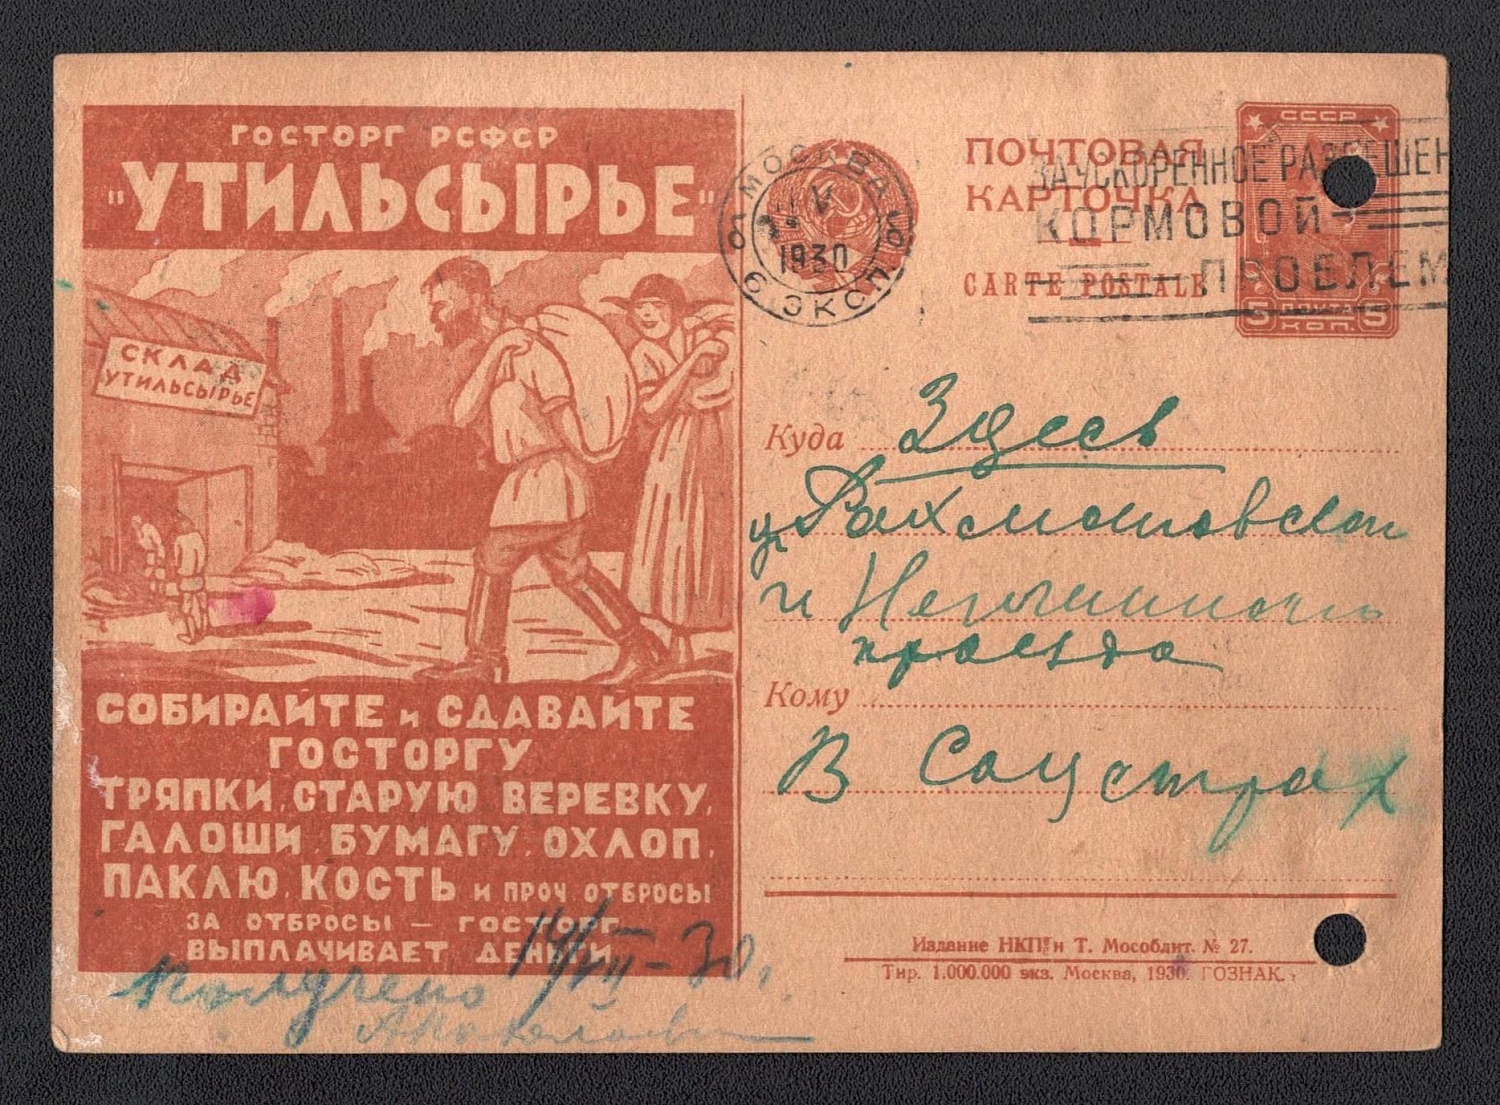 ГОСТОРГ РСФСР
"УТИЛЬСЫРЬЕ"
СКЛАД
УТИЛЬСЫРЬЕ
СОБИРАЙТЕ и СДАВАЙТЕ
ГОСТОРГУ
ТРЯПКИ, СТАРУЮ ВЕРЕВКУ,
ГАЛОШИ, БУМАГУ, ОХЛОП,
ПАКЛЮ, КОСТЬ и ПРОЧ. ОТБРОСЫ
ЗА ОТБРОСЫ — ГОСТОРГ
ВЫПЛАЧИВАЕТ ДЕНЬГИ
Получено
МОСКВА
1930
6 ЭКСП
ПОЧТОВАЯ
КАРТОЧКА
CARTE POSTALE
ЗА УСКОРЕННОЕ РАЗРЕШЕН
КОРМОВОЙ
ПРОБЛЕМ
СССР
5 КОП. 5
Куда Здесь
и
проезда
Кому
В Соцстрах
Издание НКПТ и Т. Мособлит. № 27.
Тир. 1.000.000 экз. Москва, 1930. ГОЗНАК.